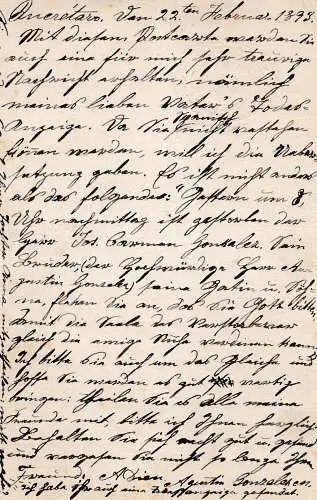 Queretaro. Den 22ten Februar 1893.
Mit diesen Postcarte warden Sie
auch eine für mich sehr traurige
Nachricht erhalten, nämlich
meines lieben Vater's Todes-
Anzeige. Da Sie spanisch nicht vastehen
könen warden, will ich die Ueber-
setzung geben. Es ist nicht anders
als das folgendes: "Gestern um 8
Uhr nachmittag ist gestorben der
Herr Jos. German Gonzalez. Sein
Bruder, (der Hochwürdige Herr Au-
gustin Gonzalez) seine Gatin u. Söh-
ne, flehen Sie an, das Sie Gott bitten
damit die Seele des Verstorbenen
gleich die ewige Ruhe
Ich bitte Sie auch um das Gleiche und
hoffe Sie warden es gut
bringen: theilen Sie es alle meine
Freunde mit, bitte ich Ihnen herzlich.
Erhalten Sie sich recht gut u. gesund
und vergessen Sie nicht so lange Ihren
Freund, Adieu. Agustin Gonzalez
Ich habe Ihr auch eine gesandt.